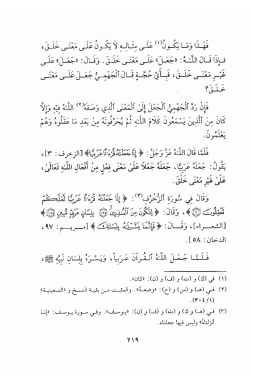 فَهَذَا وَمَا يَكُونُ(١) عَلَى مِثَالِهِ لَا يَكُونُ عَلَى مَعْنَى خَلَقَ،
فَإِذَا قَالَ اللَّهُ: «جَعَلَ» عَلَى مَعْنَى خَلَقَ. وَقَالَ: «جَعَلَ» عَلَى
غَيْرِ مَعْنَى خَلَقَ، فَبِأَيِّ حُجَّةٍ قَالَ الْجَهْمِيُّ جَعَلَ عَلَى مَعْنَى
خَلَقَ؟
فَإِنْ رَدَّ الْجَهْمِيُّ الْجَعْلَ إِلَى الْمَعْنَى الَّذِي وَصَفَهُ(٢) اللَّهُ فِيهِ وَإِلَّا
كَانَ مِنَ الَّذِينَ يَسْمَعُونَ كَلَامَ اللَّهِ ثُمَّ يُحَرِّفُونَهُ مِنْ بَعْدِ مَا عَقَلُوهُ وَهُمْ
يَعْلَمُونَ.
فَلَمَّا قَالَ اللَّهُ عَزَّ وَجَلَّ: ﴿إِنَّا جَعَلْنَاهُ قُرْآنًا عَرَبِيًّا﴾ [الزخرف: ٣]،
يَقُولُ: جَعَلَهُ عَرَبِيًّا، جَعَلَهُ جَعْلًا عَلَى مَعْنَى فِعْلٍ مِنْ أَفْعَالِ اللَّهِ تَعَالَى،
عَلَى غَيْرِ مَعْنَى خَلَقَ.
وَقَالَ فِي سُورَةِ الزُّخْرُفِ(٣): ﴿إِنَّا جَعَلْنَاهُ قُرْآنًا عَرَبِيًّا لَعَلَّكُمْ
تَعْقِلُونَ﴾، وَقَالَ: ﴿لِتَكُونَ مِنَ الْمُنْذِرِينَ بِلِسَانٍ عَرَبِيٍّ مُبِينٍ﴾
[الشعراء]، وَقَالَ: ﴿فَإِنَّمَا يَسَّرْنَاهُ بِلِسَانِكَ﴾ [مريم: ٩٧،
الدخان: ٥٨].
فَلَمَّا جَعَلَ اللَّهُ الْقُرْآنَ عَرَبِيًّا، وَيَسَّرَهُ بِلِسَانِ نَبِيِّهِ ﷺ،
(١) في و و و : «كان».
(٢) في و و : «وضعه». والمثبت من بقية النسخ و «التسعينية»
(٣٠١/١)
(٣) في و و و و : «يوسف». وفي سورة يوسف: «إنا
أنزلناه» وليس فيها جعلناه.
٢١٩